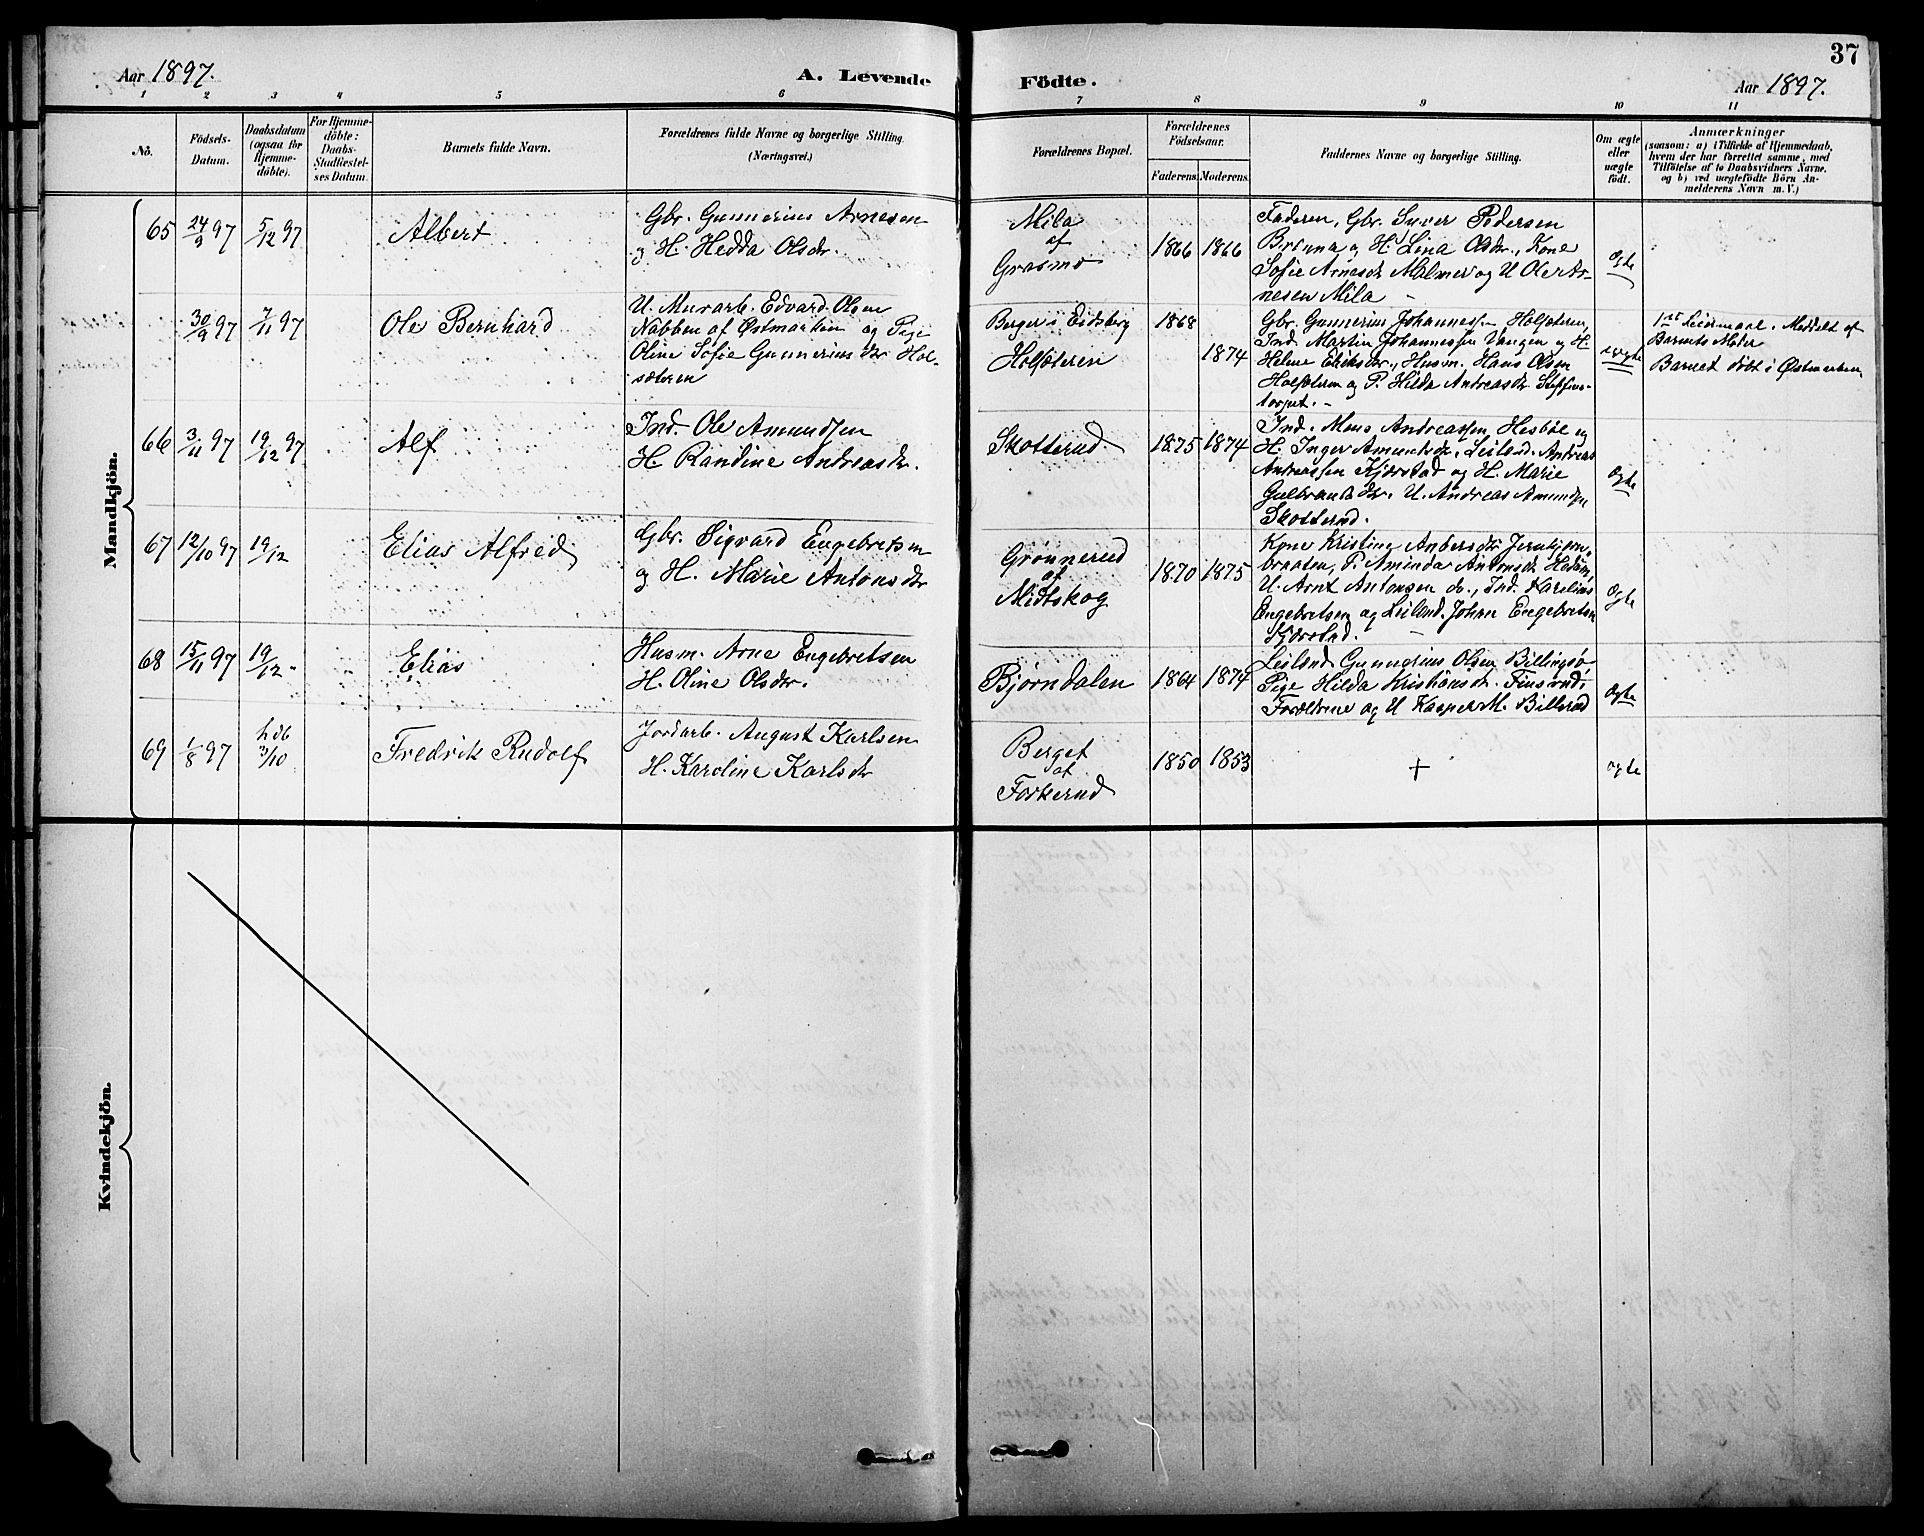 37
Aar 1897.
A. Levende
Födte.
Aar 1897.
1 2 3 4 5 6 7 8 9 10 11
Nö.
Födsels-
Datum.
Daabsdatum
(ogsaa for
Hjemme-
döbte).
For Hjemme-
döbte:
Daabs-
Stadfæstel-
ses Datum.
Barnets fulde Navn.
Forældrenes fulde Navne og borgerlige Stilling.
(Næringsvei.)
Forældrenes Bopæl.
Forældrenes
Födselsaar.
Faderens. Moderens.
Faddernes Navne og borgerlige Stilling.
Om ægte
eller
uægte
födt.
Anmærkninger
(saasom: a) i Tilfælde af Hjemmedaab,
hvem der har forrettet samme, med
Tilföielse af to Daabsvidners Navne,
og b) ved uægtefödte Börn An-
melderens Navn m. V.)
Mandkjön.
65 24/9 97 5/12 97 Albert
Gbr. Gunnerius Arnesen
og H. Hedda Olsdr.
Mila
af
Grasmo
1866 1866
Faderen, Gbr. Syver Pedersen
Bruna og H. Lina Olsdr., Kone
Sofie Arnesdr Malmer og U Ole Ar-
nesen Mila –
ægte
30/9 97 7/11 97 Ole Bernhard
U. Murarb. Edvard Olsen
Nabben af Østmarken og Pige
Oline Sofie Gunnerius dr Hol-
sæteren
Berger i Eidsberg 1868
Holsæteren 1874
Gbr. Gunnerius Johannessen Holsæteren,
Ind. Martin Johannessen Vangen og H.
Helene Eriksdr., Husm. Hans Olsen
Holsæteren og P. Hilda Andreasdr. Steffens-
torpet. –
uægte
1ste Leiermaal. Meddelt af
Barnets Moder
Barnet døbt i Østmarken
66 3/11 97 19/12 97 Alf
Ind. Ole Amundsen
H. Randine Andreasdr.
Skotterud
1875 1874
Ind. Mons Andreassen, Hesbøl og
H. Inger Amundsdr., Leilend. Andreas
Andreassen Kjærstad og H. Marie
Gulbrands dr. U. Andreas Amundsen
Skotterud.
ægte
67 12/10 97 19/12 Elias Alfred
Gbr. Sigvard Engebretsen
og H. Marie Antonsdr
Grønnerud
af
Midtskog
1870 1875
Kone Kristine Andersdr
braaten, P. Aminda Antonsdr
U. Arnt Antonsen do., Ind. Karelius
Engebretsen og Leilend. Johan Engebretsen
Kjærstad. –
ægte
68 15/11 97 19/12 – Elias
Husm. Arne Engebretsen
H. Oline Olsdr.
Bjørndalen
1864 1874
Leilend Gunnerius Olsen Billingsø
Pige Hilda Kristiansdr. Finsrud,
Forældrene og U Kasper M. Billerud
ægte
69 1/8 97 h db 3/10 Fredrik Rudolf
Jordarb. August Karlsen
H. Karoline Karlsdr
Berget
af
Forkerud
1850 1853
+
ægte
Kvindekjön.